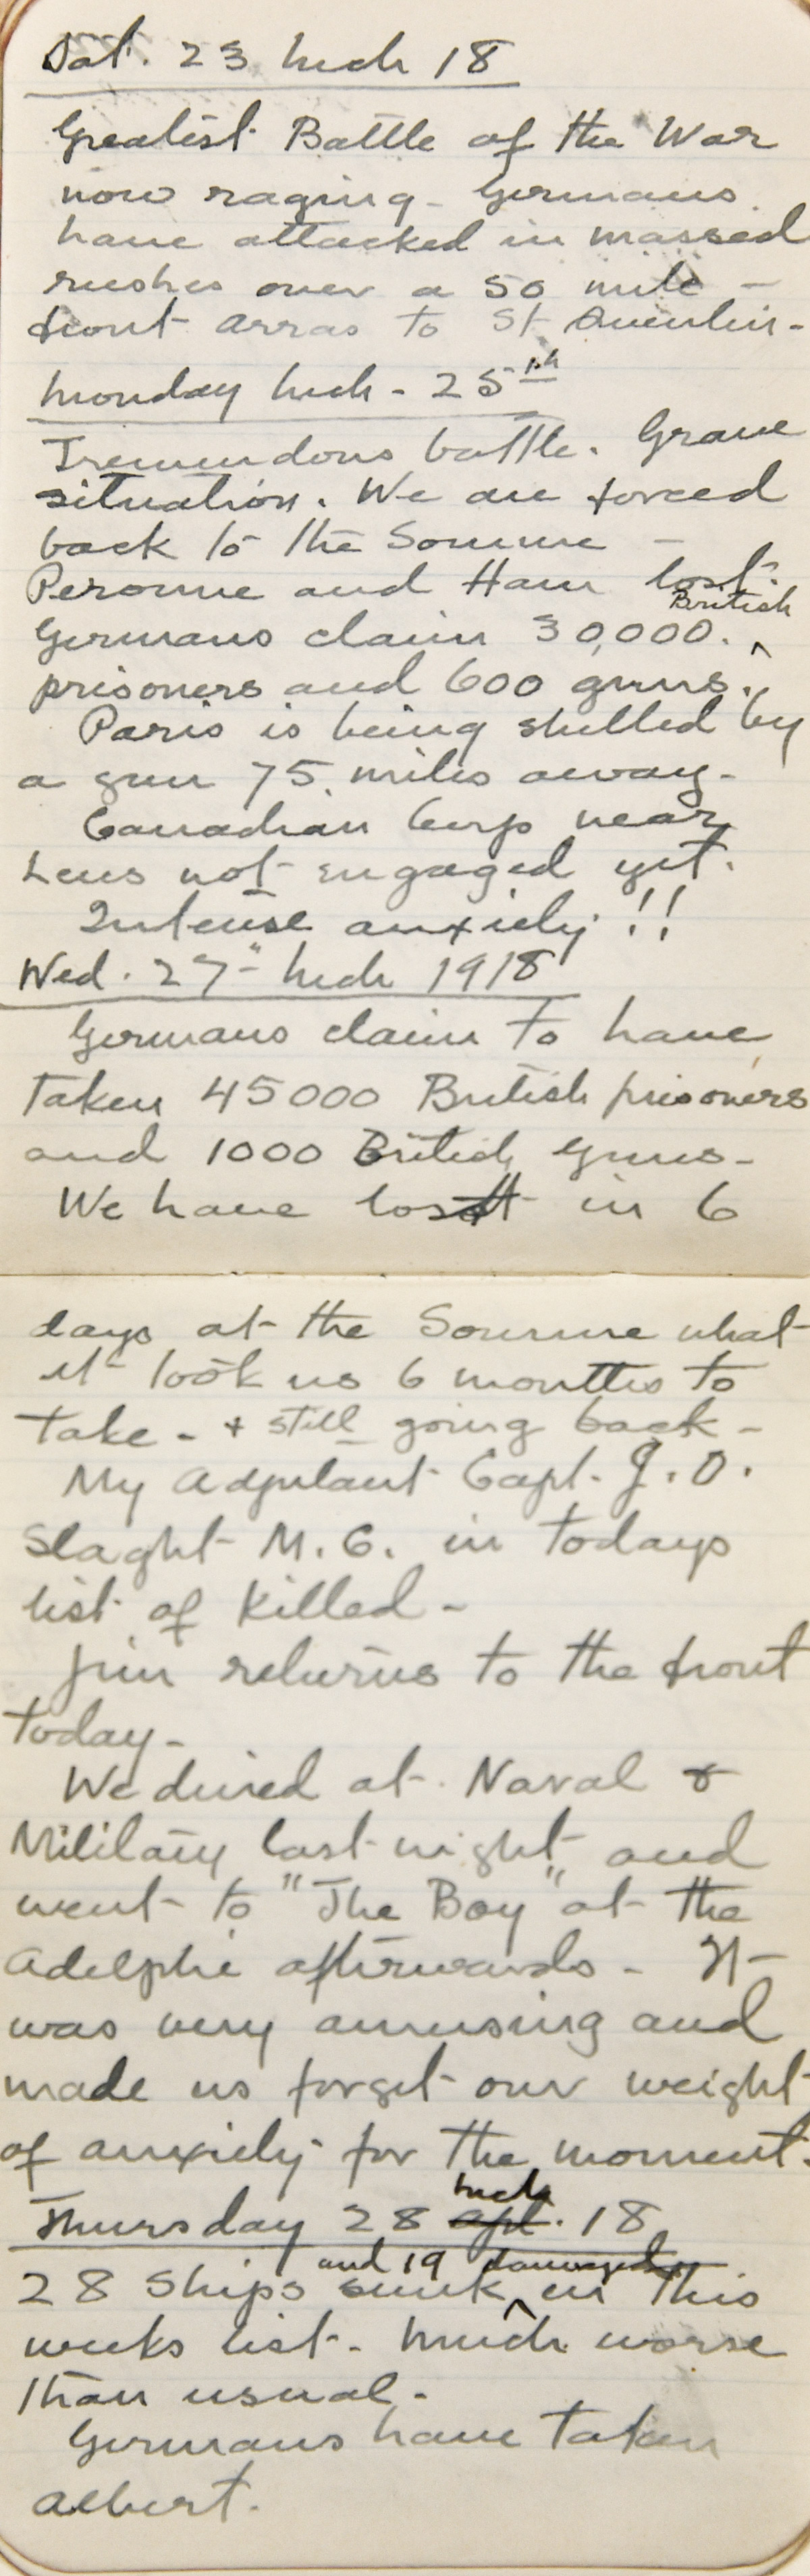 Sat. 23 Mch 18
Greatest Battle of the War
now raging - Germans
have attacked in massed
rushes over a 50 mile -
front Arras to St Quentin -
Monday Mch - 25th
Tremendous battle. Grave
situation. We are forced
back to the Somme -
Peronne and Ham lost.
Germans claim 30,000. British
prisoners and 600 guns.
Paris is being shelled by
a gun 75 miles away -
Canadian Corps near
Lens not engaged yet.
Intense anxiety !!
Wed. 27" Mch 1918
Germans claim to have
taken 45000 British prisoners
and 1000 British guns -
We have lost in 6
days at the Somme what
it took us 6 months to
take - + still going back -
My Adjutant Capt. J. O.
Slaght M.C. in todays
list of killed -
Jim returns to the front
today -
We dined at Naval &
Military last night and
went to "The Boy" at the
Adelphi afterwards - It
was very amusing and
made us forget our weight
of anxiety for the moment.
Thursday 28 Apl. Mch 18
28 Ships sunk and 19 damaged in this
weeks list - much worse
than usual -
Germans have taken
Albert.